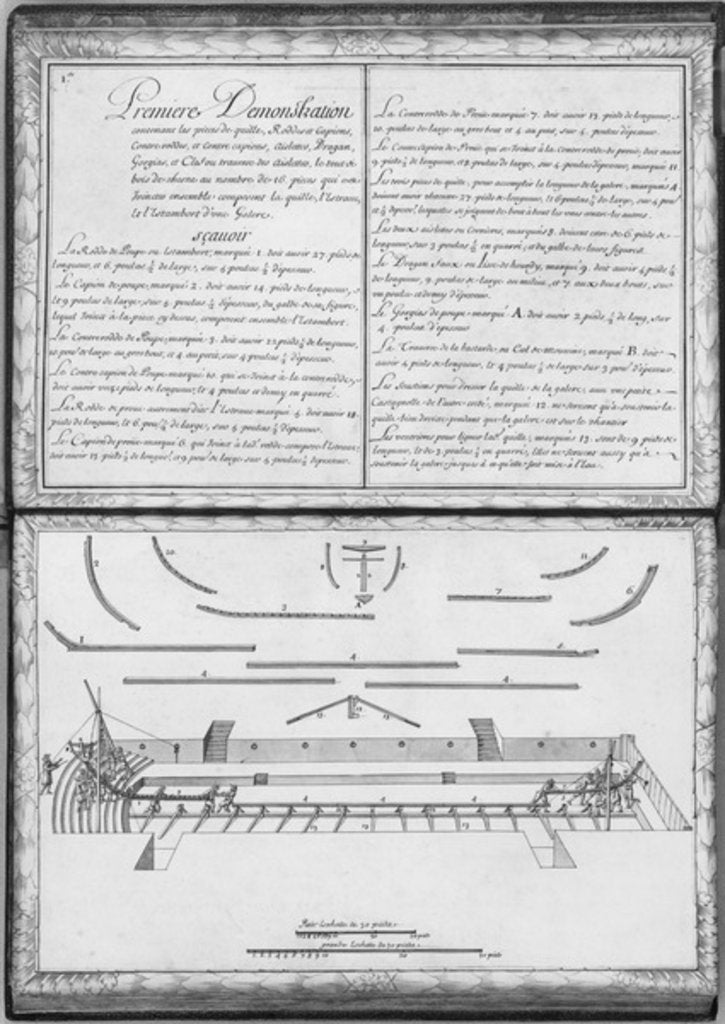 1.re
Premiere Demonstration
contenant les pieces de quille, Roddes et Capions,
Contre-roddes, et contre capions, aislettes, Dragan,
Gorgias, et Clef ou trauerse des aislettes, le tout de
bois de chesne au nombre de 16. pieces qui
Jointes ensemble composent la quille, l'Estraue,
et l'Estambort d'une Galere.
sçauoir
La Rodde de Poupe ou Estambort, marqué 1. doit auoir 27. pieds de
longueur, et 6. poulces ½ de large, sur 4 poulces ½ d'épesseur.
Le Capion de poupe, marqué 2. doit auoir 14. pieds de longueur,
et 9 poulces de large, sur 4. poulces ½ d'épesseur, du galbe de sa figure,
lequel Joinct à la piece cy dessus, composent ensemble l'Estambort.
La Contrerodde de Poupe, marqué 3. doit auoir 22 pieds ½ de longueur,
10. poulces de large au gros bout, et 4 au petit, sur 4 poulces ½ d'épesseur.
Le Contre capion de Poupe marqué 10. qui se Joinct à la contrerodde,
doit auoir pieds de longueur, et 4 poulces et demy en quarré.
La Rodde de proüe autrement ditte l'Estraue marqué 5. doit auoir 18.
pieds de longueur, et 6. poulces ½ de large, sur 4 poulces ½ d'épesseur.
Le Capion de proüe marqué 6. qui Joinct à lad. rodde compose l'Estraue,
doit auoir 13 pieds ½ de longueur, et 9 poulces de large sur 4 poulces ½ d'épesseur.
La Contrerodde de Proüe marqué 7. doit auoir 13. pieds de longueur,
10. poulces de large au gros bout et 4 au petit, sur 4. poulces d'épesseur.
Le Contrecapion de Proüe, qui se Joinct à la Contrerodde de proüe, doit auoir
9. pieds ½ de longueur, et 8. poulces de large, sur 4 poulces d'épesseur, marqué 11.
Les trois pieces de quille, pour accomplir la longueur de la galere, marqués 4
doiuent auoir chacune 27. pieds de longueur, et 6 poulces ½ de large, sur 4 poulces
et ½ d'épesseur, lesquelles se Joignent de bout à bout les unes auec les autres.
Les deux aislettes ou Cornieres, marqués 8. doiuent auoir de 6. pieds de
longueur, sur 3 poulces ½ en quarré, et du galbe de leurs figures.
Le Dragan faux ou Lisse de hourdy, marqué 9. doit auoir 4 pieds ½
de longueur, 9. poulces de large au milieu, et 7. aux deux bouts, sur
un poulce et demy d'épesseur.
Le Gorgias de poupe marqué A. doit auoir 2. pieds ½ de long, sur
4. poulces d'epesseur
La Trauerse de la bastarde, ou Clef de marqué B. doit
auoir 4 pieds de longueur, et 4 poulces ½ de large sur 3 poulces d'épesseur.
Les Soustiens pour dresser la quille de la galere, auec une petite
Castagnolle de l'autre costé, marqué 12. ne seruent qu'à soustenir la
quille bien droite pendant que la galere est sur le chantier
Les venterions pour ligner lad. quille, marqués 13. sont de 9. pieds de
longueur, et de 3. poulces ½ en quarré, elles ne seruent aussy qu'à
soustenir la galere jusques à ce qu'elle soit mise à l'Eau.
2
10
9
8
8
B
A
11
6
3
7
1
5
4
4
4
13
12
13
4
4
4
13
13
13
Petite Eschelle de 30 pieds
30 pieds
grande Eschelle de 30 pieds
1 2 3 4 5 6 7 8 9 10
20
30 pieds